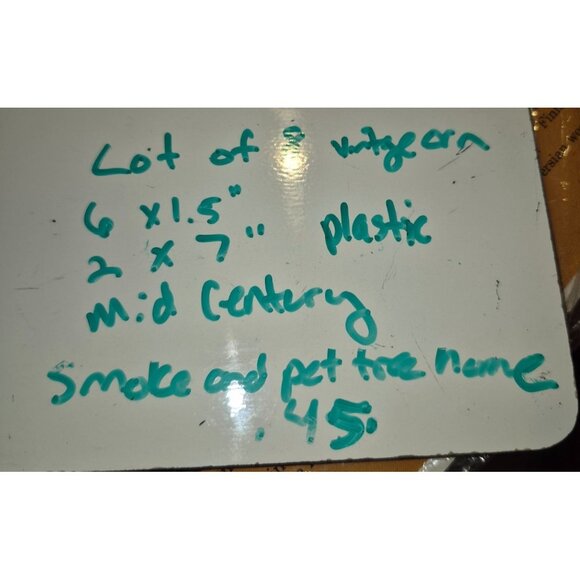 Lot of 8 vintge orn
6 x 1.5"
2 x 7" plastic
mid Century
Smoke and pet free home
.45.